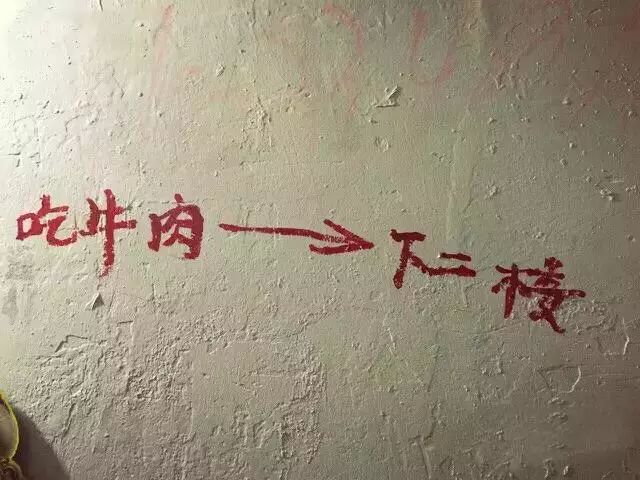 吃牛肉→下二楼